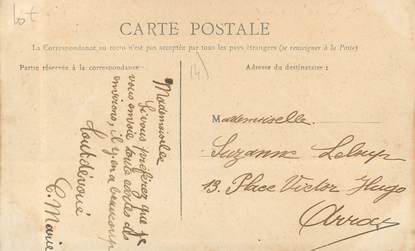 lot
CARTE POSTALE
La Correspondance au recto n'est pas acceptée par tous les pays étrangers (se renseigner à la Poste)
Partie réservée à la correspondance
Adresse du destinataire :
Mademoiselle
Si vous préférez que je
vous envoie toute cartes des
environs, il y en a beaucoup
tout dévoué
C. Marie
Mademoiselle
Suzanne Leloup
13, Place Victor Hugo
Arras